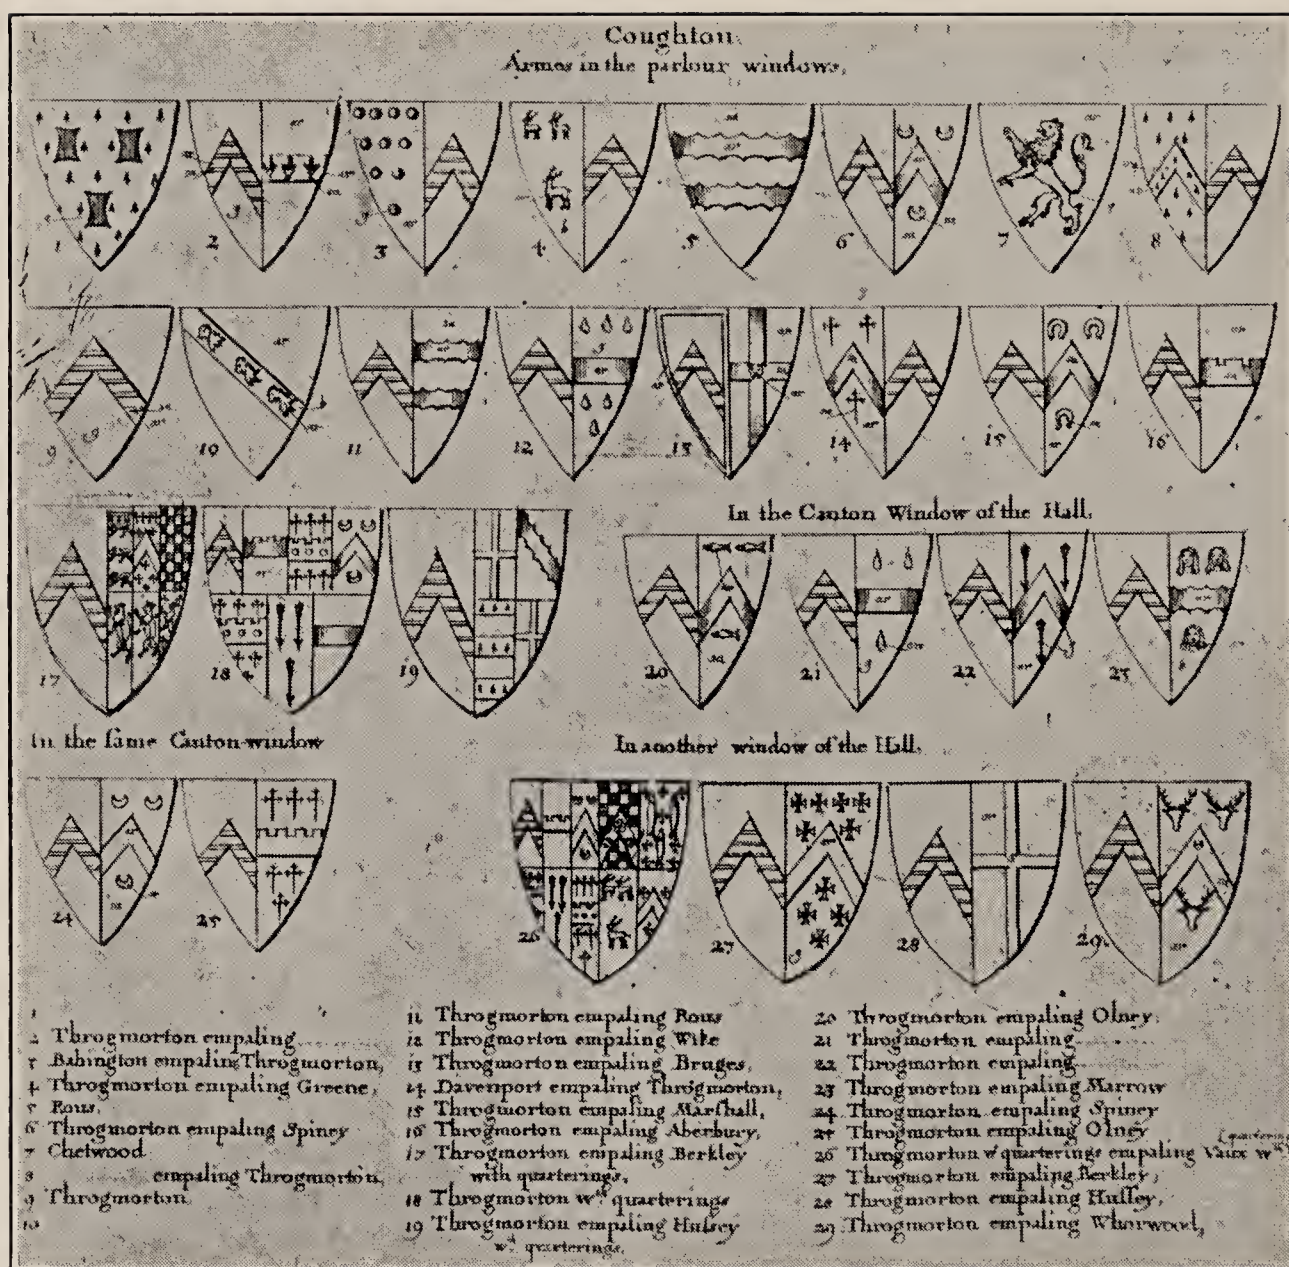 Coughton
Armes in the parlour windows,
1
2
3
4
5
6
7
8
9
10
11
12
13
14
15
16
In the Canton Window of the Hall,
17
18
19
20
21
22
23
In the same Canton-window
In another window of the Hall,
24
25
26
27
28
29
1
2 Throgmorton empaling
3 Babington empaling Throgmorton,
4 Throgmorton empaling Greene,
5 Rous,
6 Throgmorton empaling Spiney
7 Chetwood
8 empaling Throgmorton,
9 Throgmorton
10
11 Throgmorton empaling Rous
12 Throgmorton empaling Wike
13 Throgmorton empaling Bruges,
14 Davenport empaling Throgmorton,
15 Throgmorton empaling Marshall,
16 Throgmorton empaling Aberbury,
17 Throgmorton empaling Berkley
with quarterings,
18 Throgmorton wth quarterings
19 Throgmorton empaling Hussey
wth quarterings,
20 Throgmorton empaling Olney,
21 Throgmorton empaling
22 Throgmorton empaling
23 Throgmorton empaling Marrow
24 Throgmorton empaling Spiney
25 Throgmorton empaling Olney
26 Throgmorton wth quarterings empaling Vaux wth [quartering
27 Throgmorton empaling Berkley,
28 Throgmorton empaling Hussey,
29 Throgmorton empaling Whorwood,